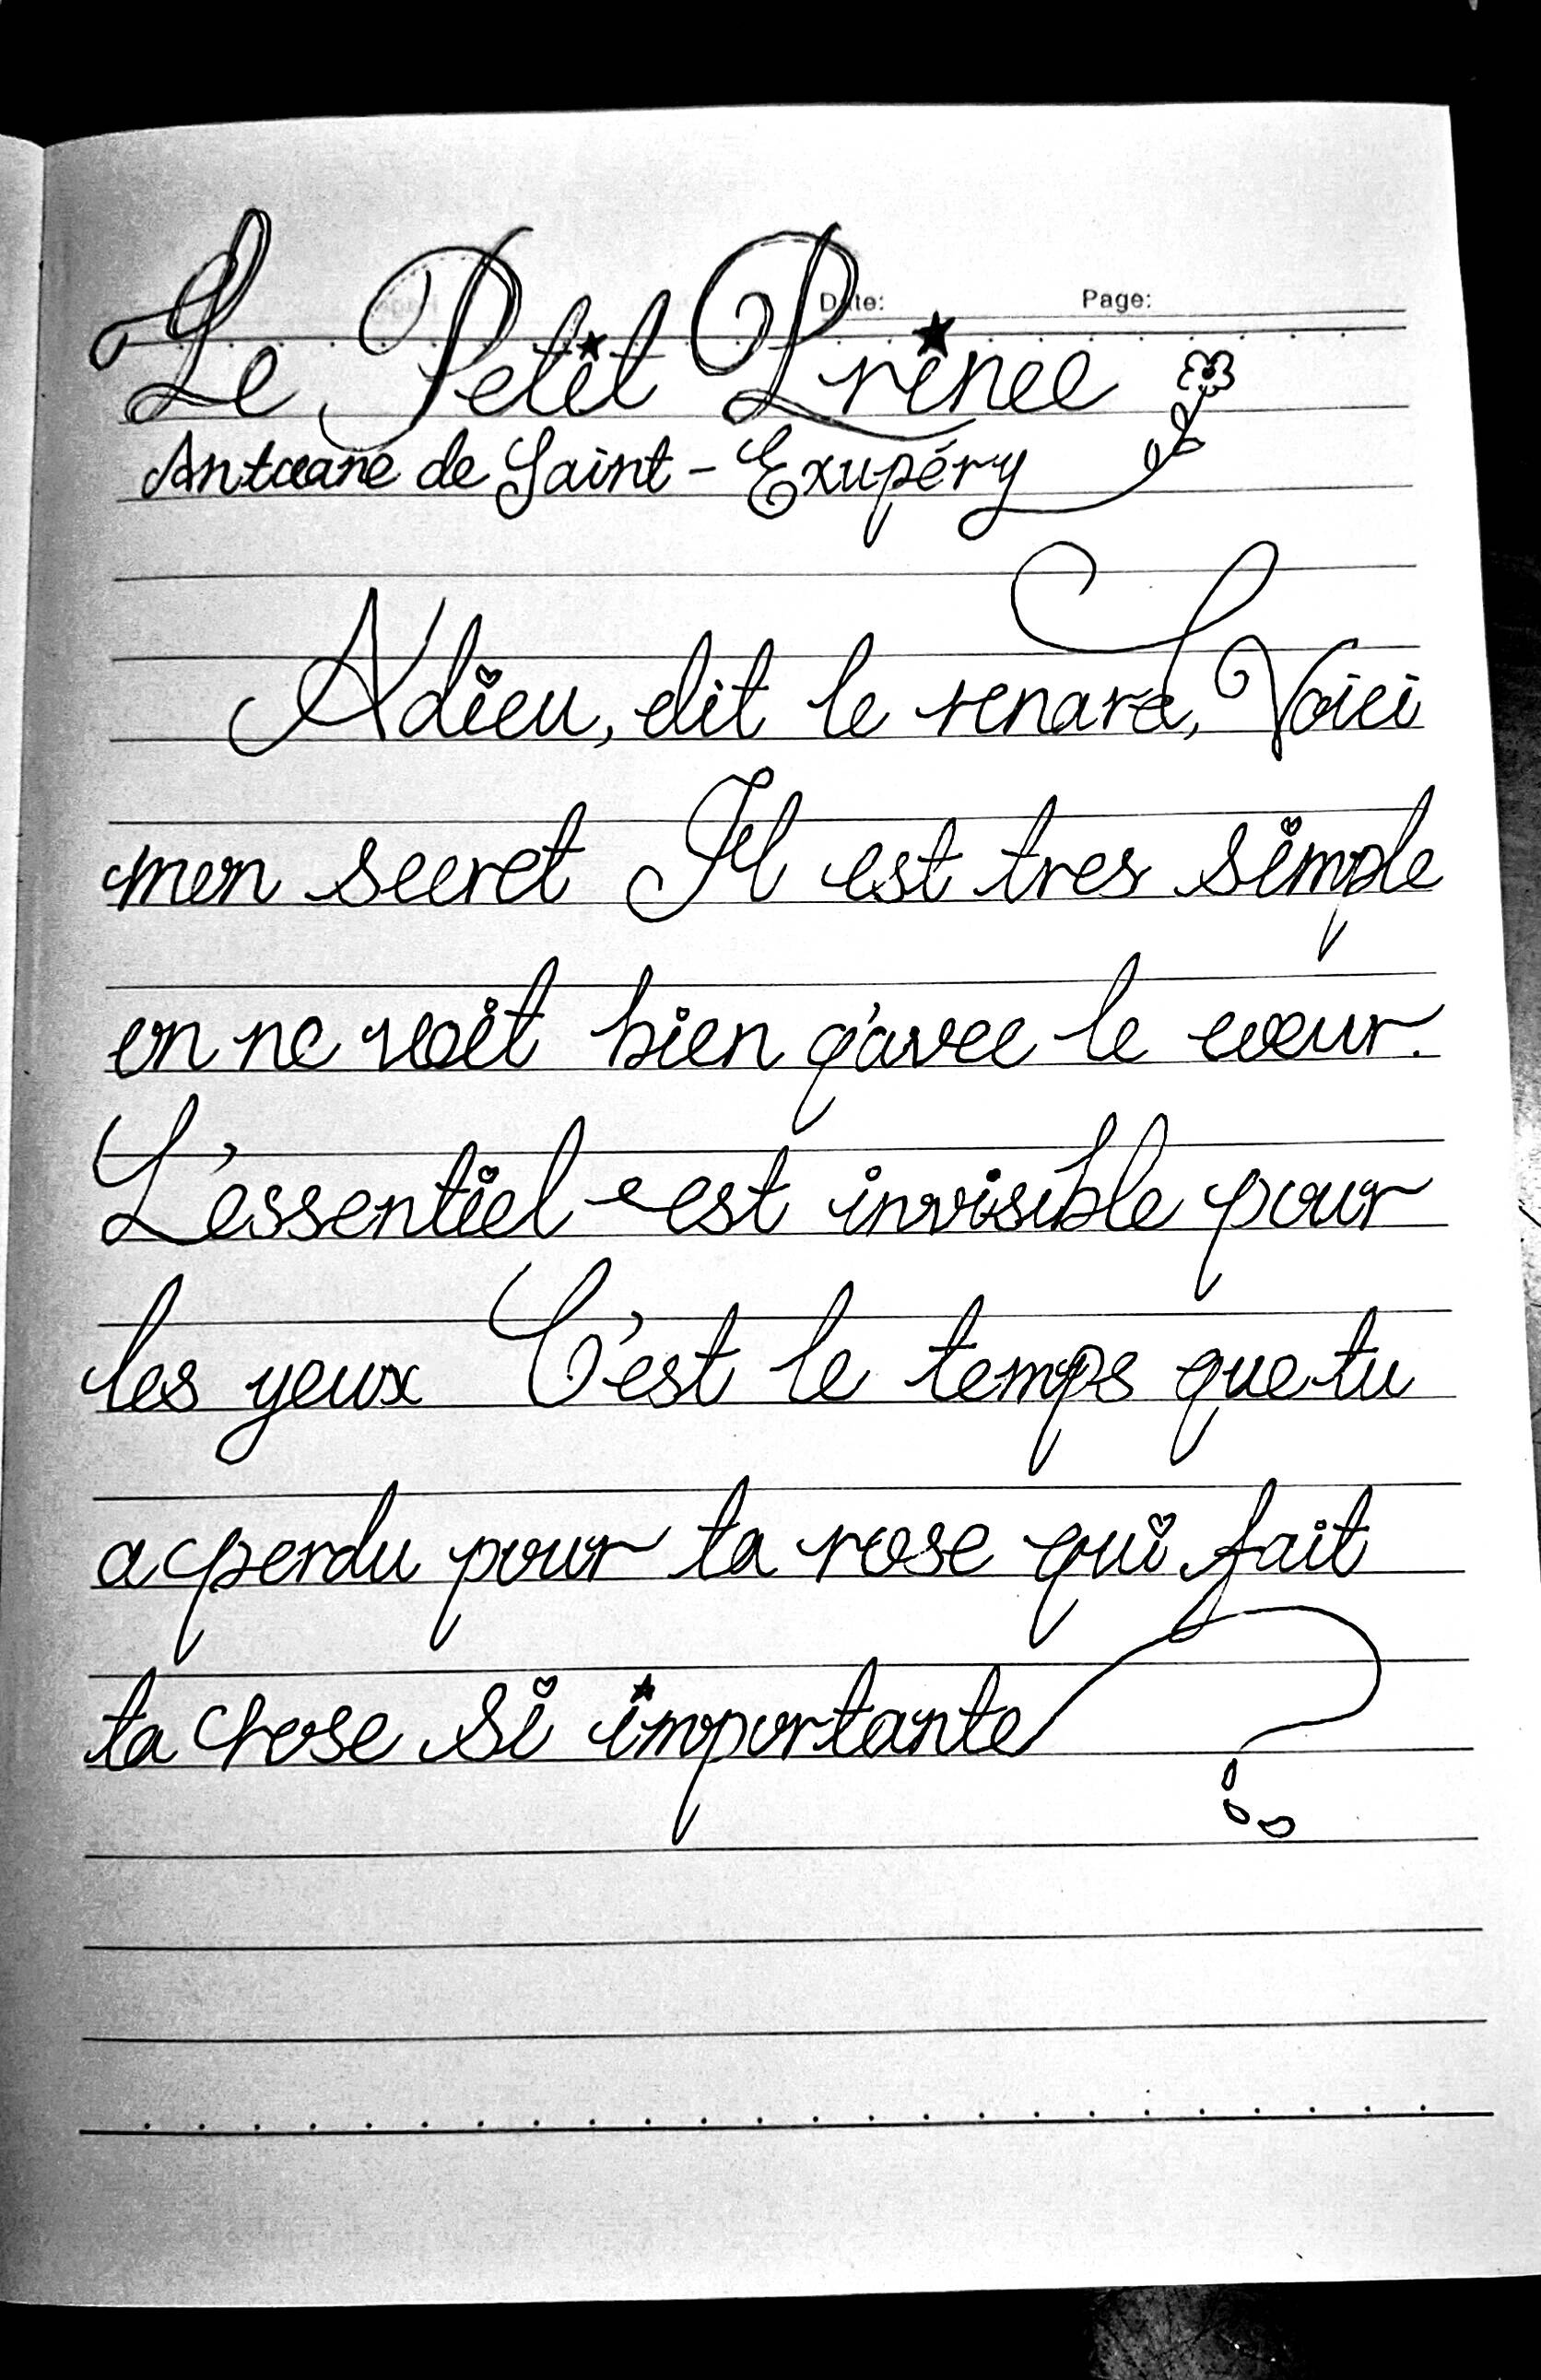 Date: Page:
Le Petit Prince
Antoane de Saint-Exupéry
Adieu, dit le renard, Voici
mon secret Il est tres simple
on ne voit bien q'avec le cœur.
L'essentiel est invisible pour
les yeux C'est le temps que tu
a perdu pour ta rose qui fait
ta rose si importante